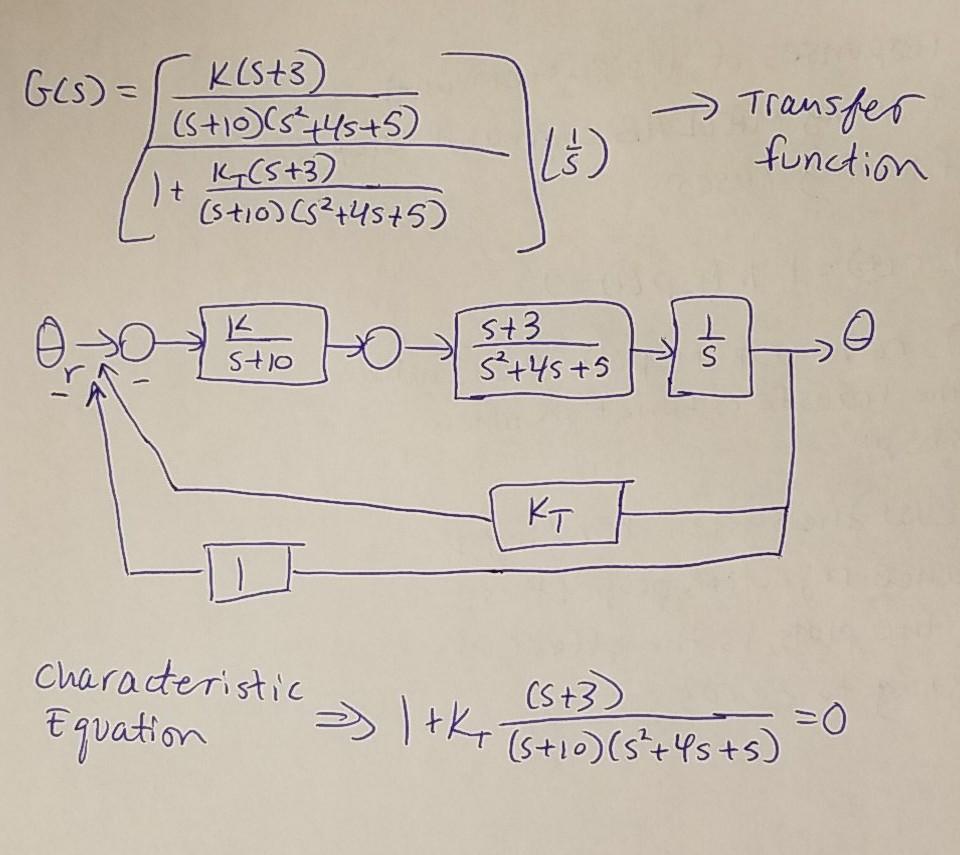 G(s) = [ K(s+3) / (s+10)(s²+4s+5) / 1 + K_T(s+3) / (s+10)(s²+4s+5) ] (1/s) → Transfer function
θ_r → ○ → K / s+10 → ○ → s+3 / s²+4s+5 → 1/s → θ
- -
K_T
1
Characteristic Equation ⇒ 1 + K_T (s+3) / (s+10)(s²+4s+5) = 0